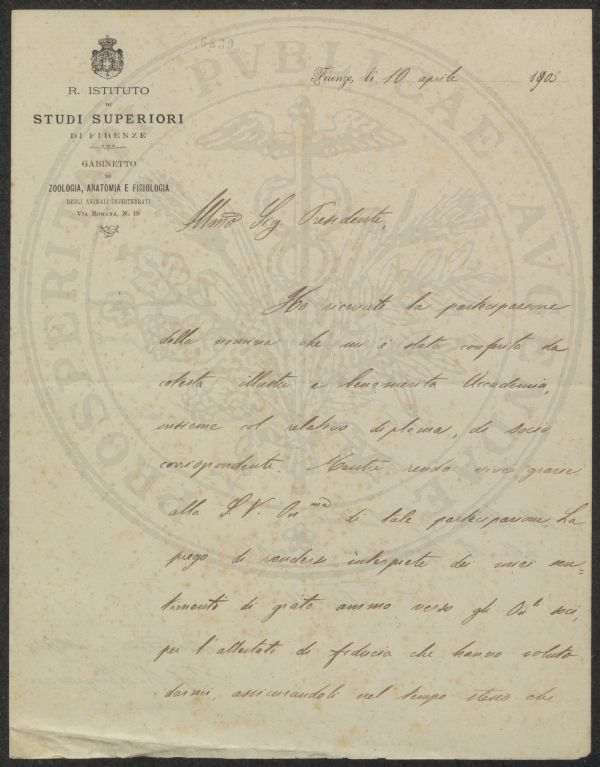 6839
Firenze, li 10 aprile 1905
R. ISTITUTO
DI
STUDI SUPERIORI
DI FIRENZE
GABINETTO
DI
ZOOLOGIA, ANATOMIA E FISIOLOGIA
DEGLI ANIMALI INVERTEBRATI
VIA ROMANA, N. 19
Illmo Sig Presidente,
Ho ricevuto la partecipazione
della nomina che mi è stata conferita da
cotesta illustre e benemerita Accademia,
insieme col relativo diploma, di socio
corrispondente. Mentre rendo vive grazie
alla S. V. On.ma di tale partecipazione, La
prego di rendersi interprete dei miei sen-
timenti di grato animo verso gli On.li soci,
per l'attestato di fiducia che hanno voluto
darmi, assicurandoli nel tempo stesso che
PROSPERITATI PVBLICAE AVGENDAE